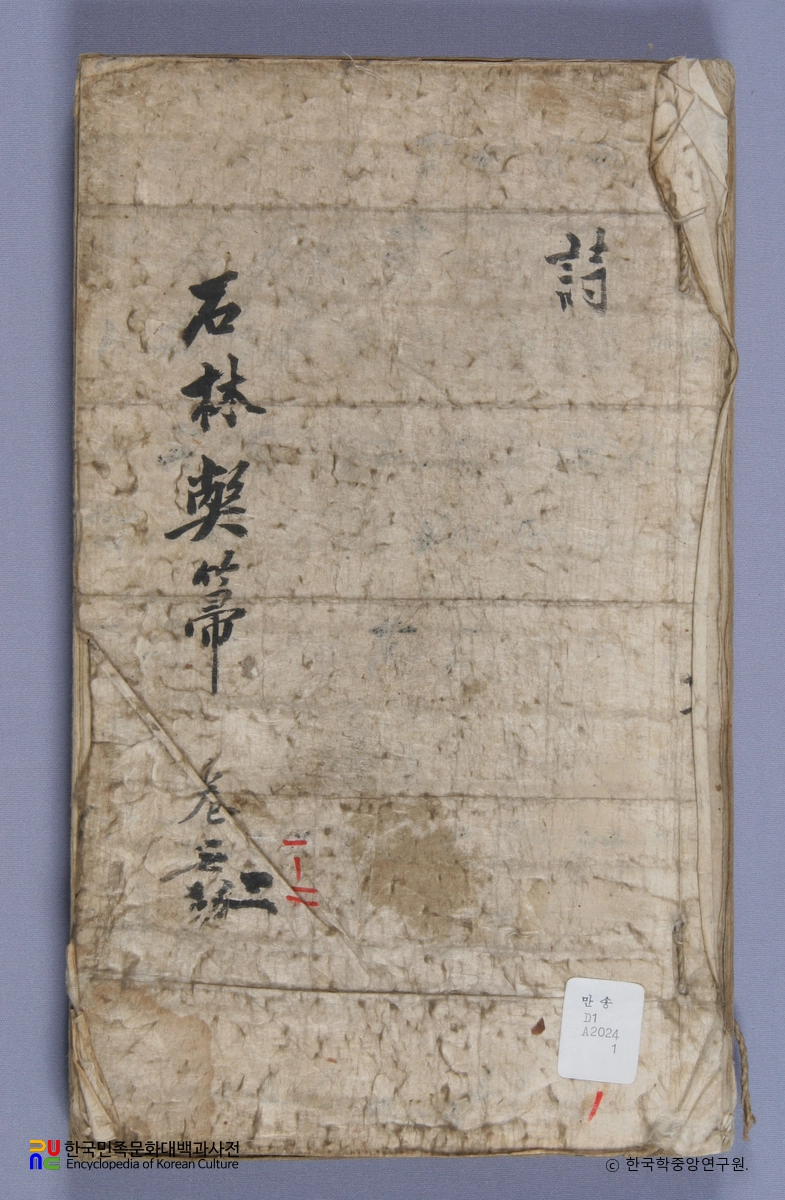 詩
石林弊箒 卷
二
一-二
만송
D1
A2024
1
한국민족문화대백과사전
Encyclopedia of Korean Culture
© 한국학중앙연구원.